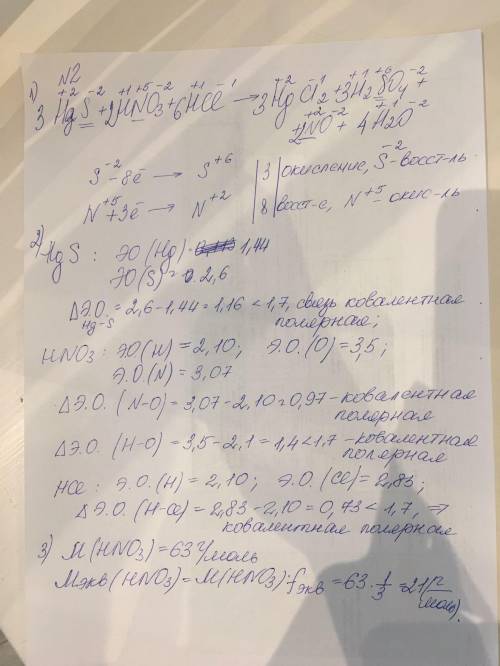 N2
1) 3 Hg⁺²S⁻² + 2H⁺¹N⁺⁵O₃⁻² + 6H⁺¹Cl⁻¹ → 3Hg⁺²Cl₂⁻¹ + 3H₂⁺¹S⁺⁶O₄⁻² +
2N⁺²O⁻² + 4H₂⁺¹O⁻²
S⁻² - 8ē → S⁺⁶ | 3 | окисление, S⁻² - восст-ль
N⁺⁵ + 3ē → N⁺² | 8 | восст-е, N⁺⁵ - окис-ль
2) HgS : ЭО (Hg) = 1,44
ЭО (S) = 2,6
ΔЭ.О. Hg-S = 2,6 - 1,44 = 1,16 < 1,7, связь ковалентная
полярная;
HNO₃ : ЭО (H) = 2,10; Э.О. (O) = 3,5;
Э.О. (N) = 3,07
ΔЭ.О. (N-O) = 3,07 - 2,10 = 0,97 - ковалентная
полярная
ΔЭ.О. (H-O) = 3,5 - 2,1 = 1,4 < 1,7 - ковалентная
полярная
HCl : Э.О. (H) = 2,10; Э.О. (Cl) = 2,83;
ΔЭ.О. (H-Cl) = 2,83 - 2,10 = 0,73 < 1,7, ⇒
ковалентная полярная
3) M (HNO₃) = 63 г/моль
Mэкв (HNO₃) = M (HNO₃) · fэкв = 63 · 1/3 = 21 (г/моль).